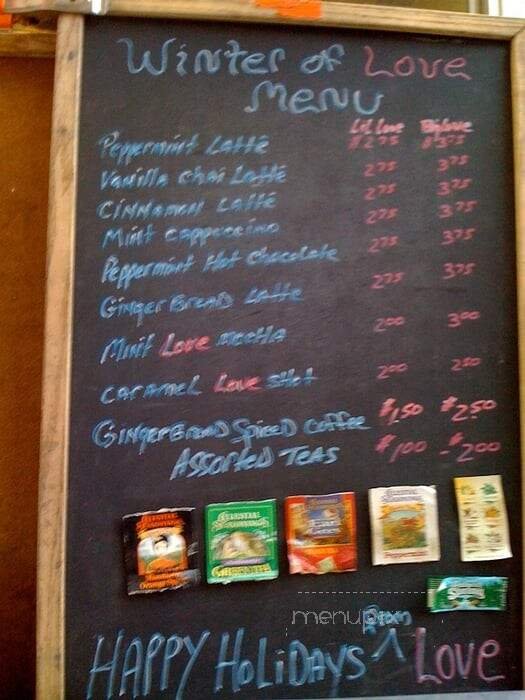 Winter of Love
Menu
Lil Love Big Love
Peppermint Latté $2.75 $3.75
Vanilla Chai Latté 2.75 3.75
Cinnamon Latté 2.75 3.75
Mint Cappuccino 2.75 3.75
Peppermint Hot Chocolate 2.75 3.75
GingerBread Latté 2.75 3.75
Mint Love Mocha 2.00 3.00
Caramel Love Shot 2.00 2.50
GingerBread Spiced Coffee $1.50 $2.50
Assorted Teas $1.00 - $2.00
menupix
HAPPY HOLIDAYS From Love